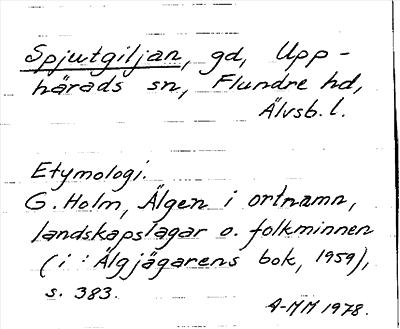 Spjutgiljan, gd, Upp-
härads sn, Flundre hd,
Älvsb. l.
Etymologi.
G. Holm, Älgen i ortnamn,
landskapslagar o. folkminnen
(i : Älgjägarens bok, 1959),
s. 383.
A-MM 1978.